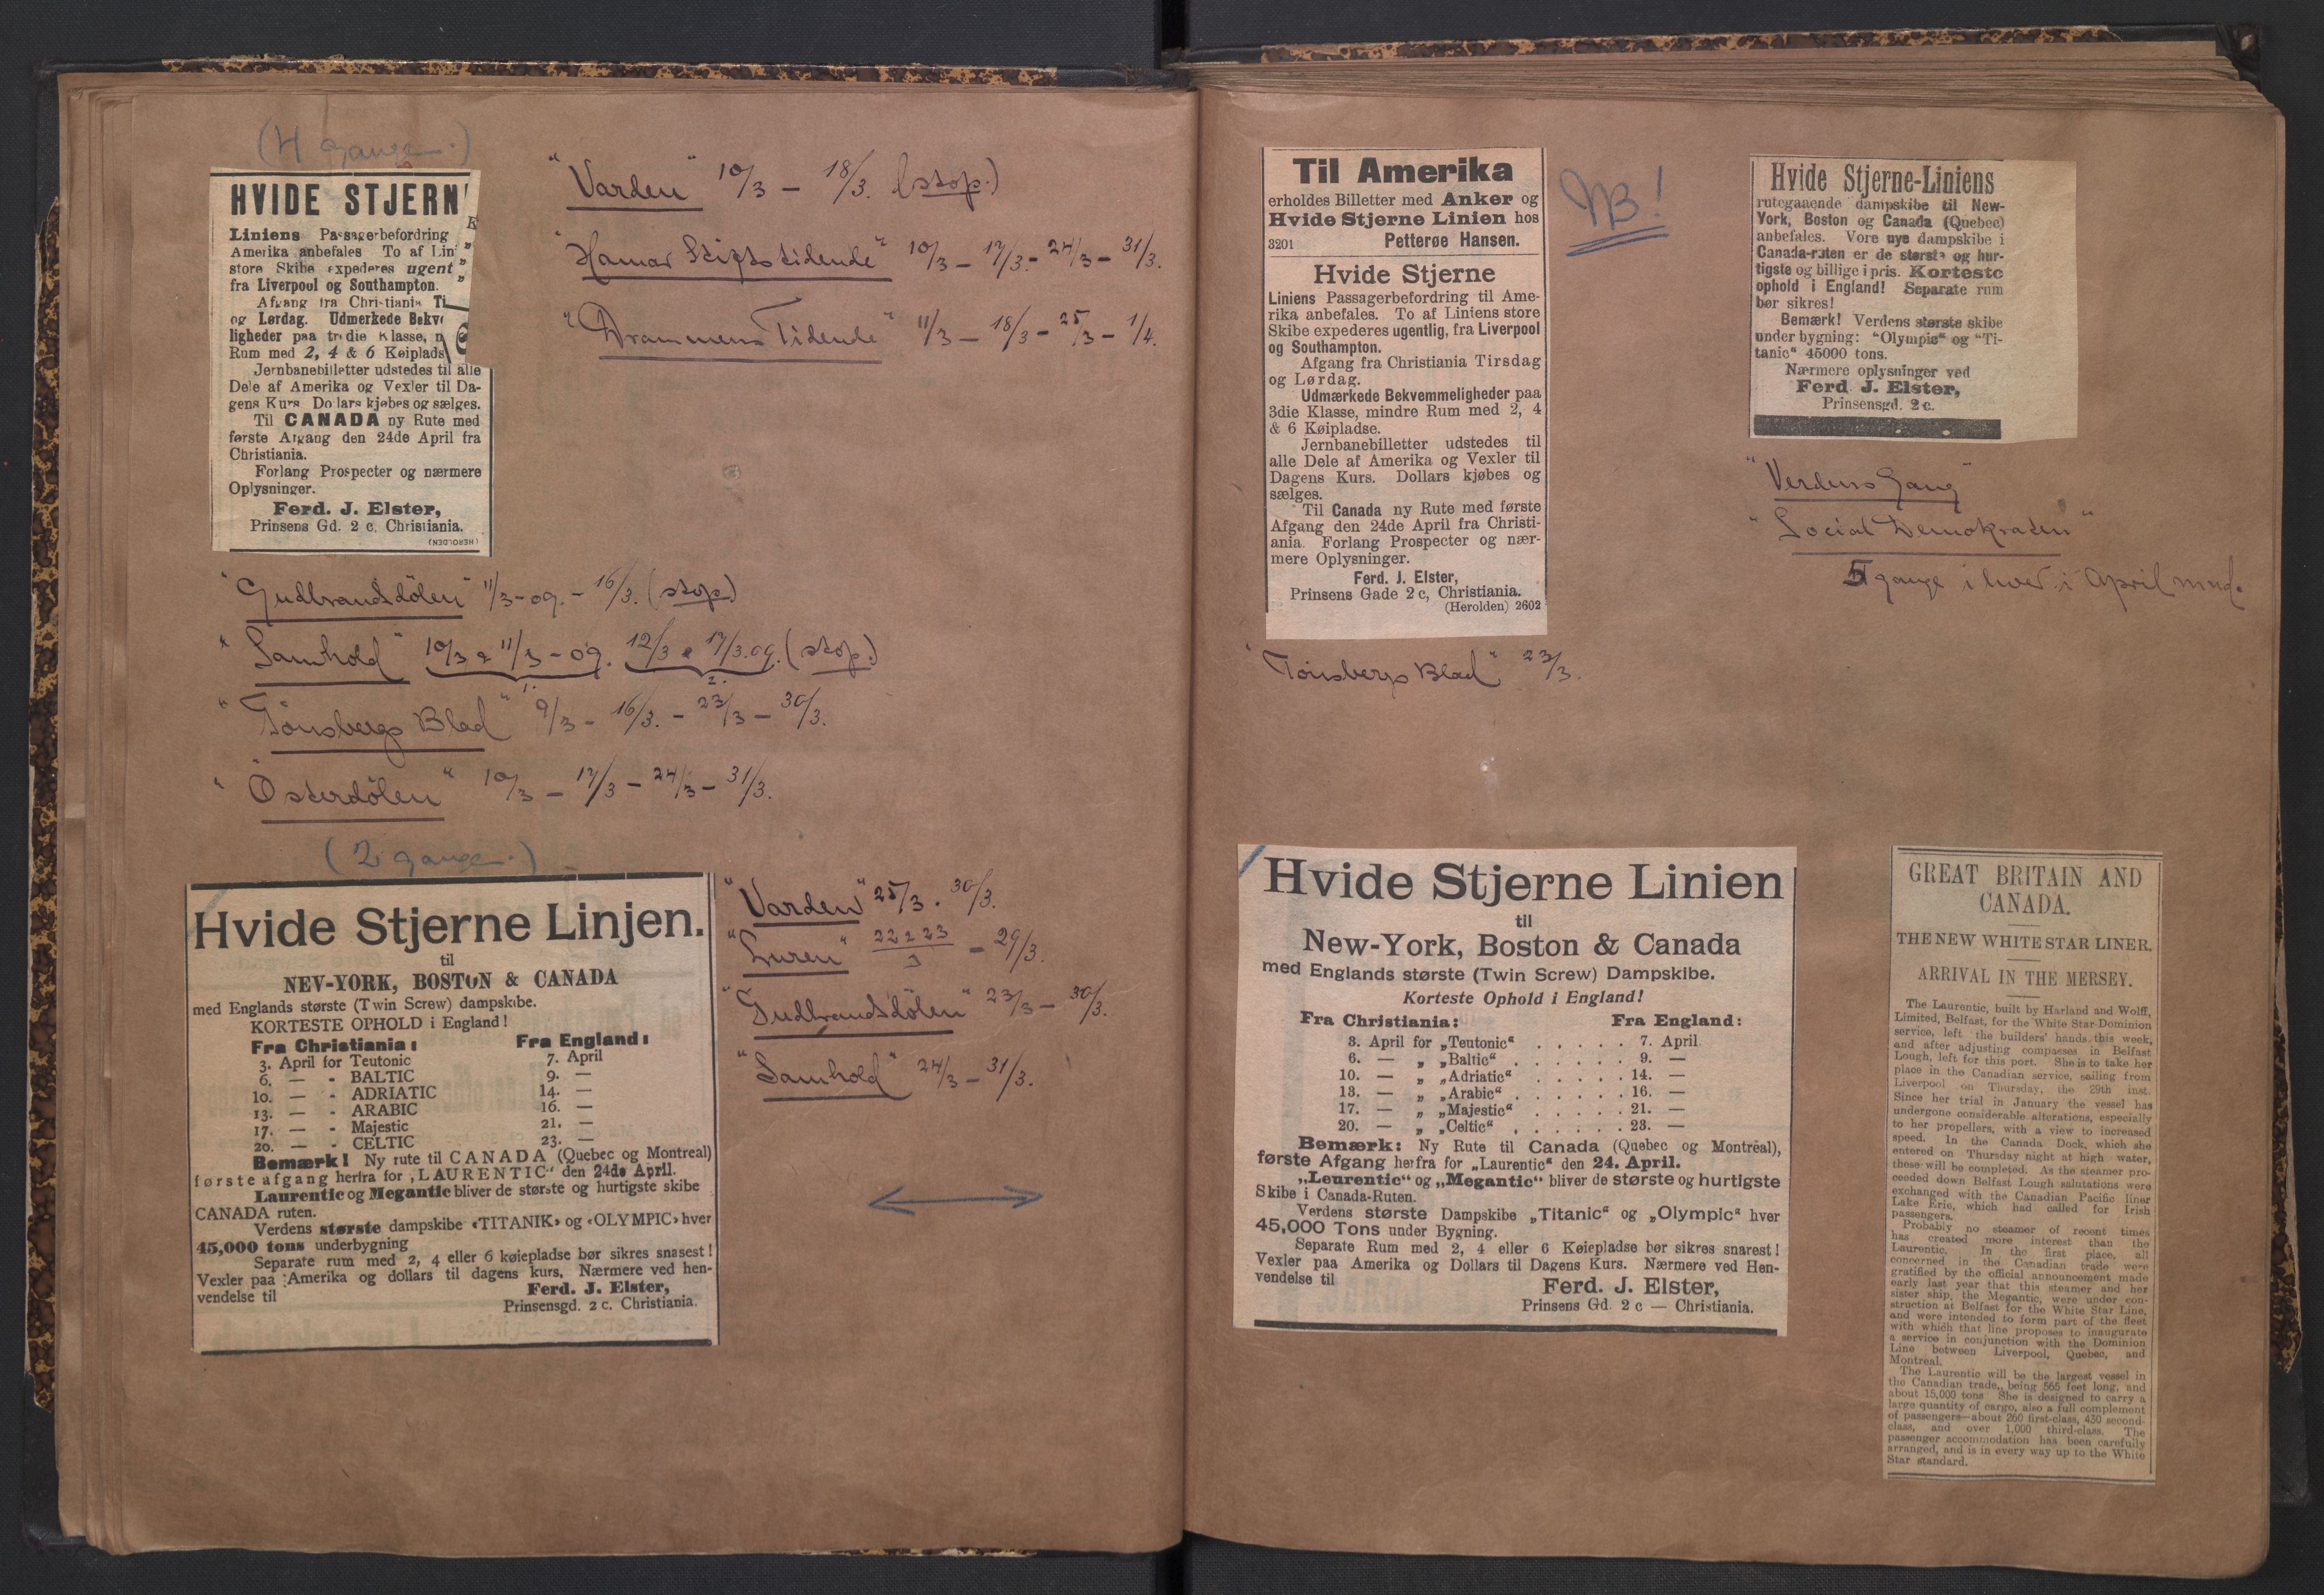 (4 gange.)
HVIDE STJERN
Liniens Passagerbefordring
Amerika anbefales To af Lin
store Skibe expederes ugent
fra Liverpool og Southampton.
Afgang fra Christiania Ti
og Lørdag. Udmerkede Bekve
ligheder paa tredie Klasse, n
Rum med 2, 4 & 6 Køiplads
Jernbanebilletter udstedes til alle
Dele af Amerika og Vexler til Da-
gens Kurs Dollars kjøbes og sælges.
Til CANADA ny Rute med
første Afgang den 24de April fra
Christiania.
Forlang Prospecter og nærmere
Oplysninger.
Ferd. J. Elster,
Prinsens Gd. 2 c. Christiania.
(HEROLDEN)
"Varden" 10/3 - 18/3. (stop.)
"Hamar Stiftstidende" 10/3 - 17/3. - 24/3 - 31/3.
"Drammens Tidende" 11/3 - 18/3 - 25/3 - 1/4.
"Gudbrandsdölen" 11/3 - 09. - 16/3. (stop)
"Samhold" 10/3 & 11/3 - 09. 12/3 & 17/3.09. (stop.)
1. 2.
"Tönsbergs Blad" 9/3 - 16/3. - 23/3 - 30/3.
"Österdölen" 10/3 - 17/3 - 24/3 - 31/3.
(2 gange.)
Hvide Stjerne Linjen.
til
NEV-YORK, BOSTON & CANADA
med Englands største (Twin Screw) dampskibe.
KORTESTE OPHOLD i England!
Fra Christiania: Fra England:
3. April for Teutonic 7. April
6. — - BALTIC 9. —
10. — - ADRIATIC 14. —
13. — - ARABIC 16. —
17. — - Majestic 21. —
20. — - CELTIC 23. —
Bemærk! Ny rute til CANADA (Quebec og Montreal)
første afgang herfra for „LAURENTIC“ den 24de April.
Laurentic og Megantic bliver de største og hurtigste skibe
CANADA ruten.
Verdens største dampskibe «TITANIK» og «OLYMPIC» hver
45,000 tons underbygning
Separate rum med 2, 4 eller 6 køiepladse bør sikres snasest!
Vexler paa Amerika og dollars til dagens kurs. Nærmere ved hen-
vendelse til Ferd. J. Elster,
Prinsensgd. 2 c. Christiania.
"Varden" 25/3. 30/3.
"Luren" 22 & 23/3 - 29/3.
"Gudbrandsdölen" 23/3 - 30/3.
"Samhold" 24/3 - 31/3.
Til Amerika
erholdes Billetter med Anker og
Hvide Stjerne Linien hos
3201 Petterøe Hansen.
Hvide Stjerne
Liniens Passagerbefordring til Ame-
rika anbefales. To af Liniens store
Skibe expederes ugentlig, fra Liverpool
og Southampton.
Afgang fra Christiania Tirsdag
og Lørdag.
Udmærkede Bekvemmeligheder paa
3die Klasse, mindre Rum med 2, 4
& 6 Køipladse.
Jernbanebilletter udstedes til
alle Dele af Amerika og Vexler til
Dagens Kurs. Dollars kjøbes og
sælges.
Til Canada ny Rute med første
Afgang den 24de April fra Christi-
ania. Forlang Prospecter og nær-
mere Oplysninger.
Ferd. J. Elster,
Prinsens Gade 2 c, Christiania.
(Herolden) 2602
NB!
"Tönsbergs Blad" 23/3.
Hvide Stjerne-Liniens
rutegaaende dampskibe til New-
York, Boston og Canada (Quebec)
anbefales. Vore nye dampskibe i
Canada-ruten er de største og hur-
tigste og billige i pris. Korteste
ophold i England! Separate rum
bør sikres!
Bemærk! Verdens største skibe
under bygning: "Olympic" og "Ti-
tanic" 45000 tons.
Nærmere oplysninger ved
Ferd. J. Elster,
Prinsensgd. 2 c.
"Verdens Gang"
"Social Demokraten"
5 gange i hver i April mnd.
Hvide Stjerne Linien
til
New-York, Boston & Canada
med Englands største (Twin Screw) Dampskibe.
Korteste Ophold i England!
Fra Christiania: Fra England:
3. April for „Teutonic“ . . . . . 7. April
6. — „ „Baltic“ . . . . . . 9. —
10. — „ „Adriatic“ . . . . . 14. —
13. — „ „Arabic“ . . . . . . 16. —
17. — „ „Majestic“ . . . . . 21. —
20. — „ „Celtic“ . . . . . . 23. —
Bemærk: Ny Rute til Canada (Quebec og Montreal),
første Afgang herfra for „Laurentic“ den 24. April.
„Leurentic“ og „Megantic“ bliver de største og hurtigste
Skibe i Canada-Ruten.
Verdens største Dampskibe „Titanic“ og „Olympic“ hver
45,000 Tons under Bygning.
Separate Rum med 2, 4 eller 6 Køiepladse bør sikres snarest!
Vexler paa Amerika og Dollars til Dagens Kurs. Nærmere ved Hen-
vendelse til Ferd. J. Elster,
Prinsens Gd. 2 c — Christiania.
GREAT BRITAIN AND
CANADA.
THE NEW WHITE STAR LINER.
ARRIVAL IN THE MERSEY.
The Laurentic, built by Harland and Wolff,
Limited, Belfast, for the White Star-Dominion
service, left the builders' hands this week,
and after adjusting compasses in Belfast
Lough, left for this port. She is to take her
place in the Canadian service, sailing from
Liverpool on Thursday, the 29th inst.
Since her trial in January the vessel has
undergone considerable alterations, especially
to her propellers, with a view to increased
speed. In the Canada Dock, which she
entered on Thursday night at high water,
these will be completed. As the steamer pro-
ceeded down Belfast Lough salutations were
exchanged with the Canadian Pacific liner
Lake Erie, which had called for Irish
passengers.
Probably no steamer of recent times
has created more interest than the
Laurentic. In the first place, all
concerned in the Canadian trade were
gratified by the official announcement made
early last year that this steamer and her
sister ship, the Megantic, were under con-
struction at Belfast for the White Star Line,
and were intended to form part of the fleet
with which that line proposes to inaugurate
a service in conjunction with the Dominion
Line between Liverpool, Quebec, and
Montreal.
The Laurentic will be the largest vessel in
the Canadian trade, being 565 feet long, and
about 15,000 tons She is designed to carry a
large quantity of cargo, also a full complement
of passengers—about 260 first-class, 430 second-
class, and over 1,000 third-class. The
passenger accommodation has been carefully
arranged, and is in every way up to the White
Star standard.